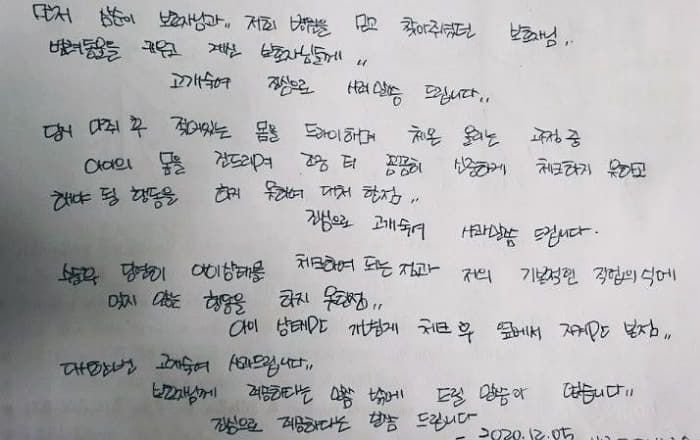 먼저 삼순이 보호자님과,, 저희 병원을 믿고 찾아주셨던 보호자님,,
반려동물을 키우고 계신 보호자님들께,,
고개숙여 진심으로 사과말씀 드립니다,,
당시 마취 후 젖어있는 몸을 드라이하며 체온 올리는 과정 중
아이의 몸을 건드리며 좀 더 꼼꼼히 신중하게 체크하지 못하고
해야 될 행동을 하지 못하여 대처 한점,,
진심으로 고개숙여 사과말씀 드립니다.
당연히 아이상태를 체크하여 되는점과 저의 기본적인 직업의식에
맞지 않는 행동을 하지 못한점,,
아이 상태만 가볍게 체크 후 옆에서 지켜만 본점,,
다시한번 고개숙여 사과드립니다,,
보호자님께 죄송하다는 말씀 밖에 드릴 말씀이 없습니다,,
진심으로 죄송하다는 말씀 드립니다
- 2020.12.05